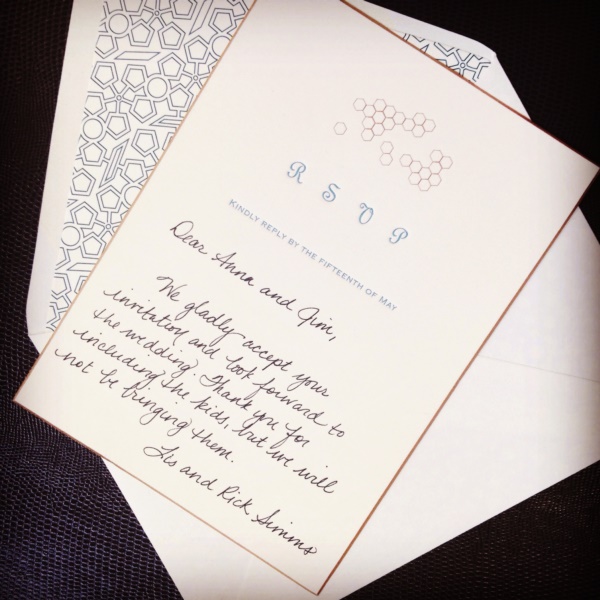 RSVP
Kindly reply by the fifteenth of May
Dear Anna and Jim,
We gladly accept your
invitation and look forward to
the wedding. Thank you for
including the kids, but we will
not be bringing them.
Lis and Rick Simms